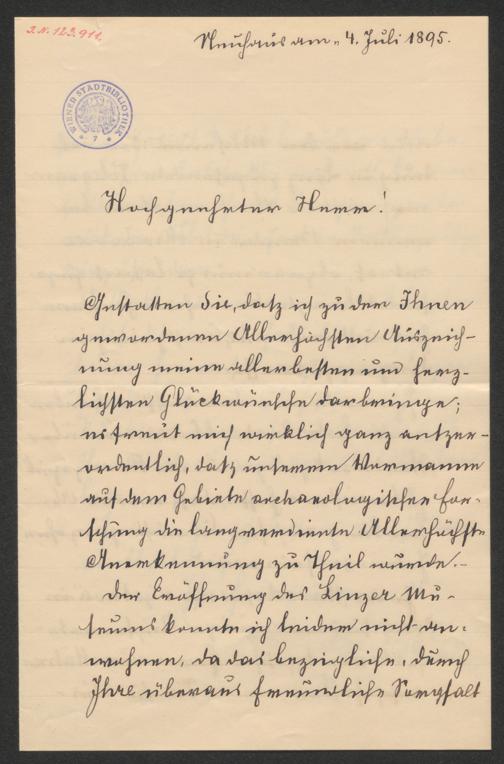 J.N. 123.911
Neuhaus am 4. Juli 1895.
WIENER STADTBIBLIOTHEK
7
Hochgeehrter Herr!
Gestatten Sie, daß ich zu der Ihnen
gewordenen Allerhöchsten Auszeich-
nung meine allerbesten und herz-
lichsten Glückwünsche darbringe;
es freut mich wirklich ganz außer-
ordentlich, daß unserem Vormanne
auf dem Gebiete archaeologischer For-
schung die langverdiente Allerhöchste
Anerkennung zu Theil wurde.-
Der Eröffnung des Linzer Mu-
seums konnte ich leider nicht an-
wohnen, da das bezügliche, durch
Ihre überaus freundliche Sorgfalt